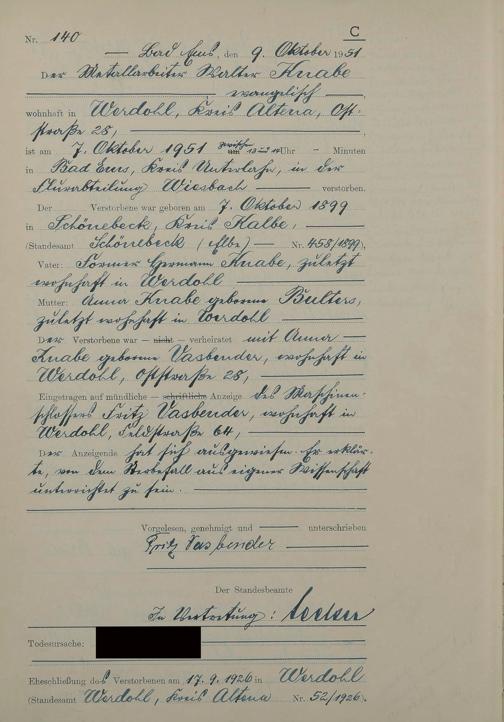 Nr. 140 C
Bad Ems, den 9. Oktober 1951
Der Metallarbeiter Walter Knabe
evangelisch
wohnhaft in Werdohl, Kreis Altena, Ost-
straße 28,
ist am 7. Oktober 1951 zwischen um 13 und 14 Uhr - Minuten
in Bad Ems, Kreis Unterlahn, in der
Flurabteilung Wiesbach verstorben.
Der Verstorbene war geboren am 7. Oktober 1899
in Schönebeck, Kreis Kalbe,
(Standesamt Schönebeck (Elbe) — Nr. 458/1899),
Vater: Former Hermann Knabe, zuletzt
wohnhaft in Werdohl
Mutter: Anna Knabe geborene Bulters,
zuletzt wohnhaft in Werdohl
Der Verstorbene war — nicht — verheiratet mit Anna
Knabe geborene Vasbender, wohnhaft in
Werdohl, Oststraße 28,
Eingetragen auf mündliche — schriftliche Anzeige des Maschinen-
schlossers Fritz Vasbender, wohnhaft in
Werdohl, Feldstraße 64,
Der Anzeigende hat sich ausgewiesen. Er erklär-
te, von dem Sterbefall aus eigener Wissenschaft
unterrichtet zu sein.
Vorgelesen, genehmigt und unterschrieben
Fritz Vasbender
Der Standesbeamte
In Vertretung:
Todesursache:
Eheschließung des Verstorbenen am 17.9.1926 in Werdohl
(Standesamt Werdohl, Kreis Altena Nr. 52/1926).